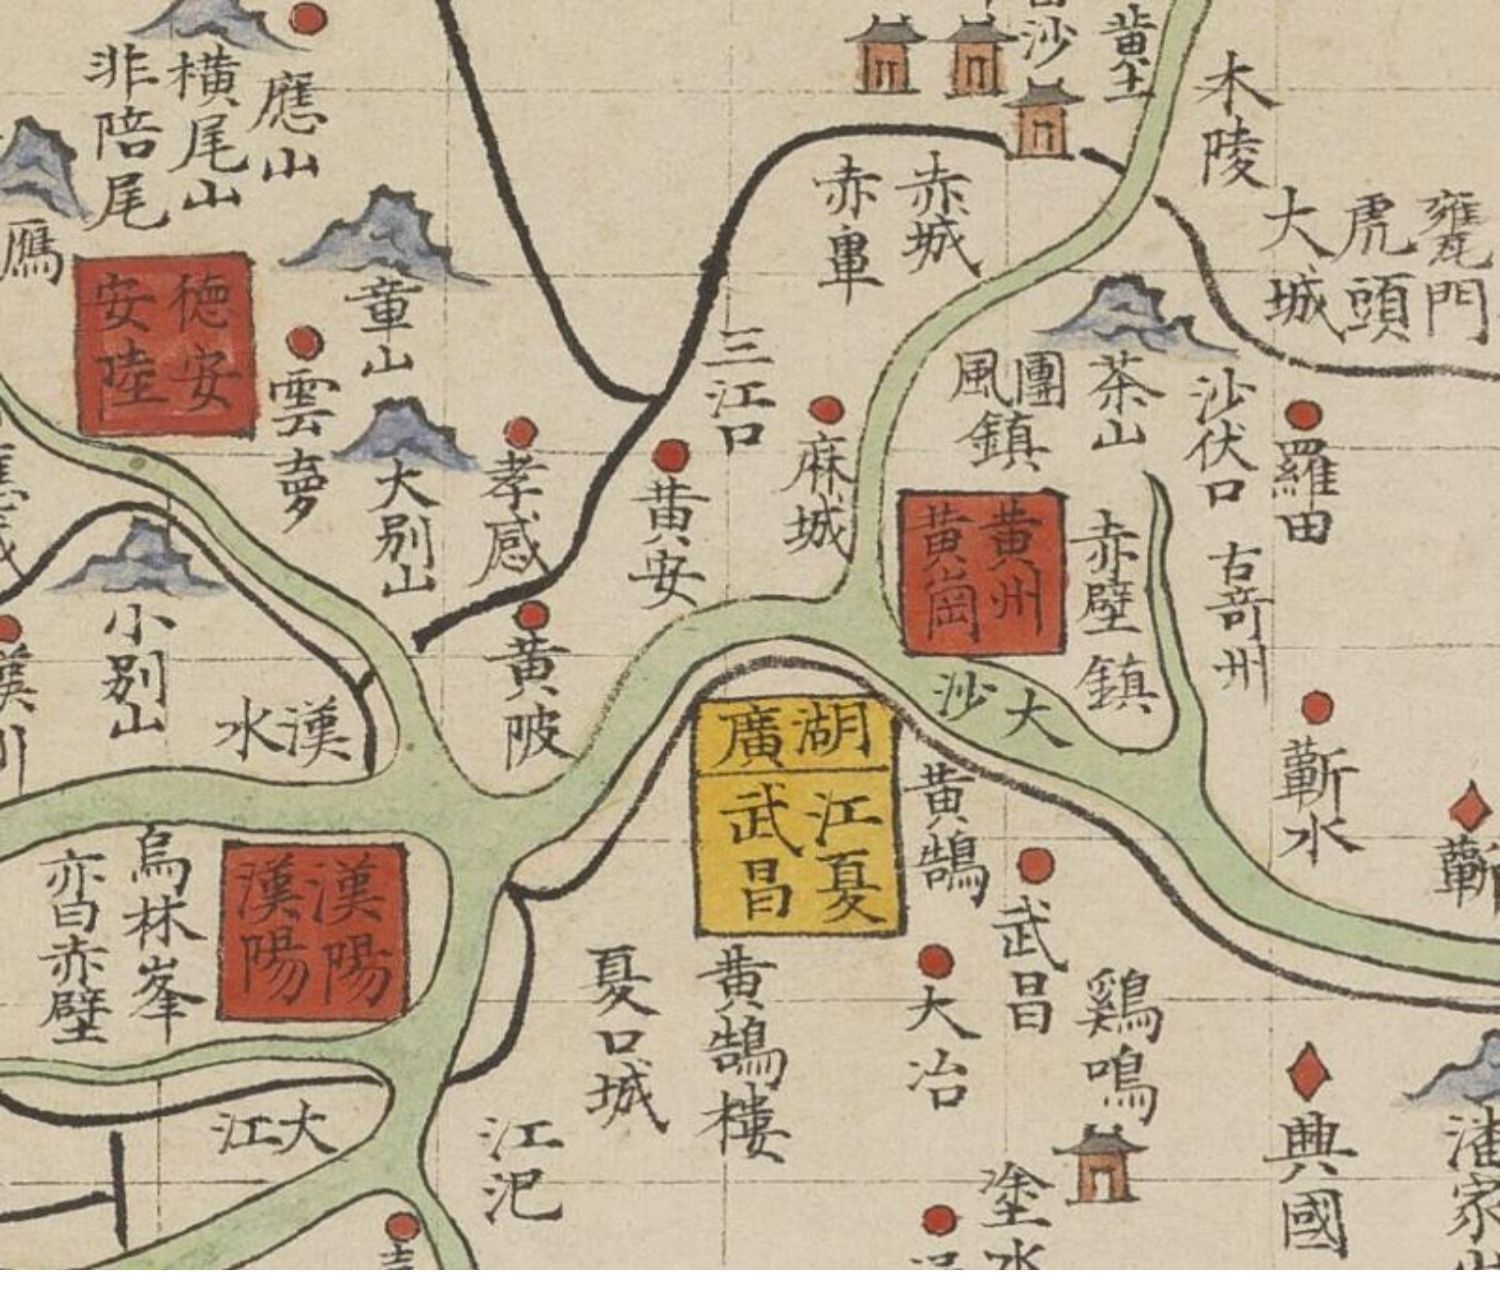 應山
橫尾山
非陪尾
黃土
木陵
大城
虎頭
門
赤城
赤畢
雁
德安
安陸
章山
雲夢
大別山
孝感
三江口
黃安
麻城
團風鎮
茶山
沙伏口
羅田
黃州
黃岡
赤壁
鎮
古竒州
小別山
漢水
黃陂
大沙
湖廣
江夏
武昌
黃鵠
蘄水
蘄
烏林峯
亦曰赤壁
漢陽
漢陽
夏口城
黃鵠樓
武昌
大冶
鷄鳴
興國
大江
江汜
塗水
潘家